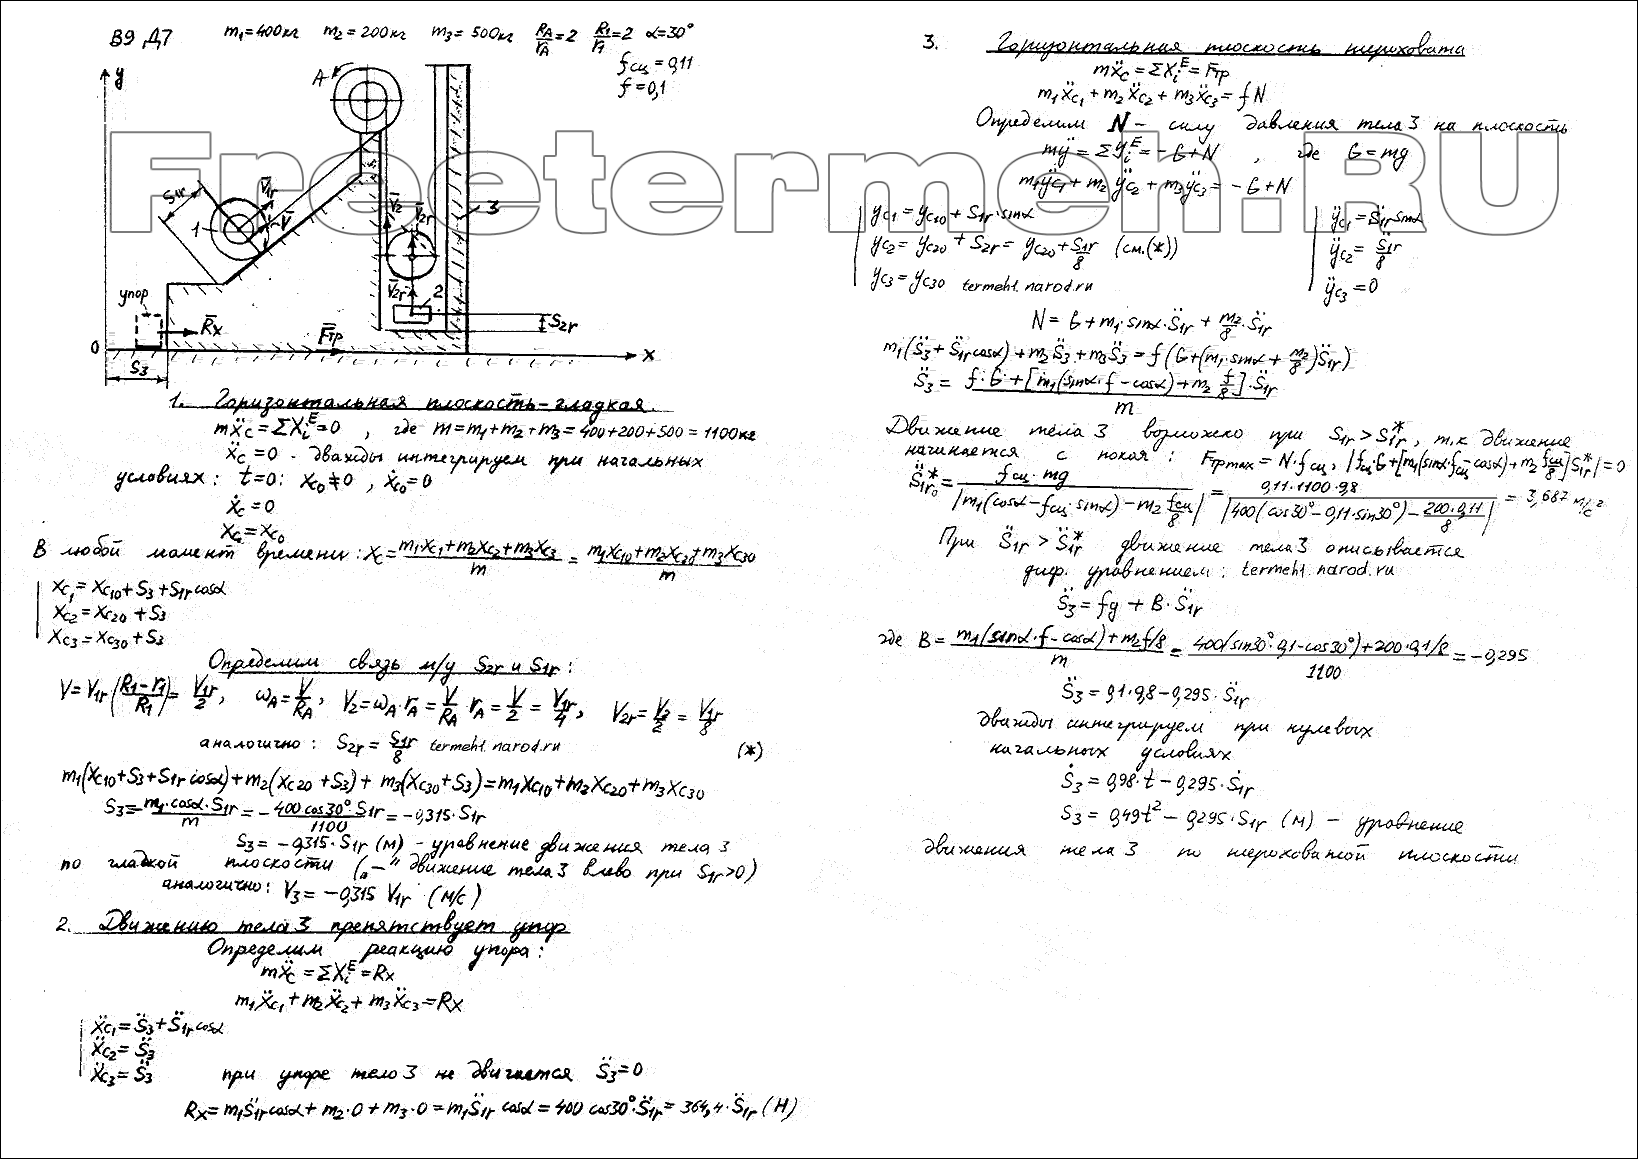 В9 Д7 m₁=400кг m₂=200кг m₃=500кг R_A/r_A=2 R₁/r₁=2 α=30°
f_сц=0,11
f=0,1
Freetermeh.RU
y
A
S₁r
V̄₁r
V̄
1
V̄₂
V̄₂r
3
V̄₂r
2
упор
R̄x
F̄тр
S₂r
0
x
S₃
1. Горизонтальная плоскость-гладкая.
mẍ_C=ΣX_i^E=0, где m=m₁+m₂+m₃=400+200+500=1100кг
ẍ_C=0 - дважды интегрируем при начальных
условиях: t=0: x_C0≠0, ẋ_C0=0
ẋ_C=0
x_C=x_C0
В любой момент времени: x_C=(m₁x_C1+m₂x_C2+m₃x_C3)/m=(m₁x_C10+m₂x_C20+m₃x_C30)/m
x_C1=x_C10+S₃+S₁r cosα
x_C2=x_C20+S₃
x_C3=x_C30+S₃
Определим связь м/у S₂r и S₁r:
V=V₁r((R₁-r₁)/R₁)=V₁r/2, ω_A=V/R_A, V₂=ω_A·r_A=V/R_A r_A=V/2=V₁r/4, V₂r=V₂/2=V₁r/8
аналогично: S₂r=S₁r/8 termeh1.narod.ru (*)
m₁(x_C10+S₃+S₁r cosα)+m₂(x_C20+S₃)+m₃(x_C30+S₃)=m₁x_C10+m₂x_C20+m₃x_C30
S₃=-m₁·cosα·S₁r/m=-400cos30°·S₁r/1100=-0,315·S₁r
S₃=-0,315·S₁r (м) - уравнение движения тела 3
по гладкой плоскости („-" движение тела 3 влево при S₁r>0)
аналогично: V₃=-0,315 V₁r (м/с)
2. Движению тела 3 препятствует упор
Определим реакцию упора:
mẍ_C=ΣX_i^E=Rx
m₁ẍ_C1+m₂ẍ_C2+m₃ẍ_C3=Rx
ẍ_C1=S̈₃+S̈₁r cosα
ẍ_C2=S̈₃
ẍ_C3=S̈₃ при упоре тело 3 не двигается S̈₃=0
Rx=m₁S̈₁r cosα+m₂·0+m₃·0=m₁S̈₁r cosα=400cos30°·S̈₁r=364,4·S̈₁r (Н)
3. Горизонтальная плоскость шероховата
mẍ_C=ΣX_i^E=Fтр
m₁ẍ_C1+m₂ẍ_C2+m₃ẍ_C3=fN
Определим N - силу давления тела 3 на плоскость
mÿ=ΣY_i^E=-G+N, где G=mg
m₁ÿ_C1+m₂ÿ_C2+m₃ÿ_C3=-G+N
y_C1=y_C10+S₁r·sinα ÿ_C1=S̈₁r sinα
y_C2=y_C20+S₂r=y_C20+S₁r/8 (см.(*)) ÿ_C2=S̈₁r/8
y_C3=y_C30 termeh1.narod.ru ÿ_C3=0
N=G+m₁·sinα·S̈₁r+m₂/8·S̈₁r
m₁(S̈₃+S̈₁r cosα)+m₂S̈₃+m₃S̈₃=f(G+(m₁·sinα+m₂/8)S̈₁r)
S̈₃=(f·G+[m₁(sinα·f-cosα)+m₂ f/8]·S̈₁r)/m
Движение тела 3 возможно при S̈₁r>S̈₁r*, т.к движение
начинается с покоя: Fтр max=N·f_сц, |f_сц·G+[m₁(sinα·f_сц-cosα)+m₂ f_сц/8]S̈₁r*|=0
S̈₁r₀*=f_сц·mg/|m₁(cosα-f_сц·sinα)-m₂ f_сц/8|=0,11·1100·9,8/|400(cos30°-0,11·sin30°)-200·0,11/8|=3,687 м/с²
При S̈₁r>S̈₁r* движение тела 3 описывается
диф. уравнением: termeh1.narod.ru
S̈₃=fg+B·S̈₁r
где B=(m₁(sinα·f-cosα)+m₂f/8)/m=(400(sin30°·0,1-cos30°)+200·0,1/8)/1100=-0,295
S̈₃=0,1·9,8-0,295·S̈₁r
дважды интегрируем при нулевых
начальных условиях
Ṡ₃=0,98·t-0,295·Ṡ₁r
S₃=0,49t²-0,295·S₁r (м) - уравнение
движения тела 3 по шероховатой плоскости